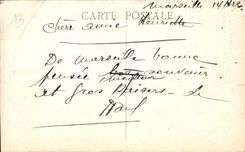 13
Marseille 14
CARTE POSTALE
Chère amie Henriette
De Marseille bonne
pensée souvenir
et Gros Baisers de